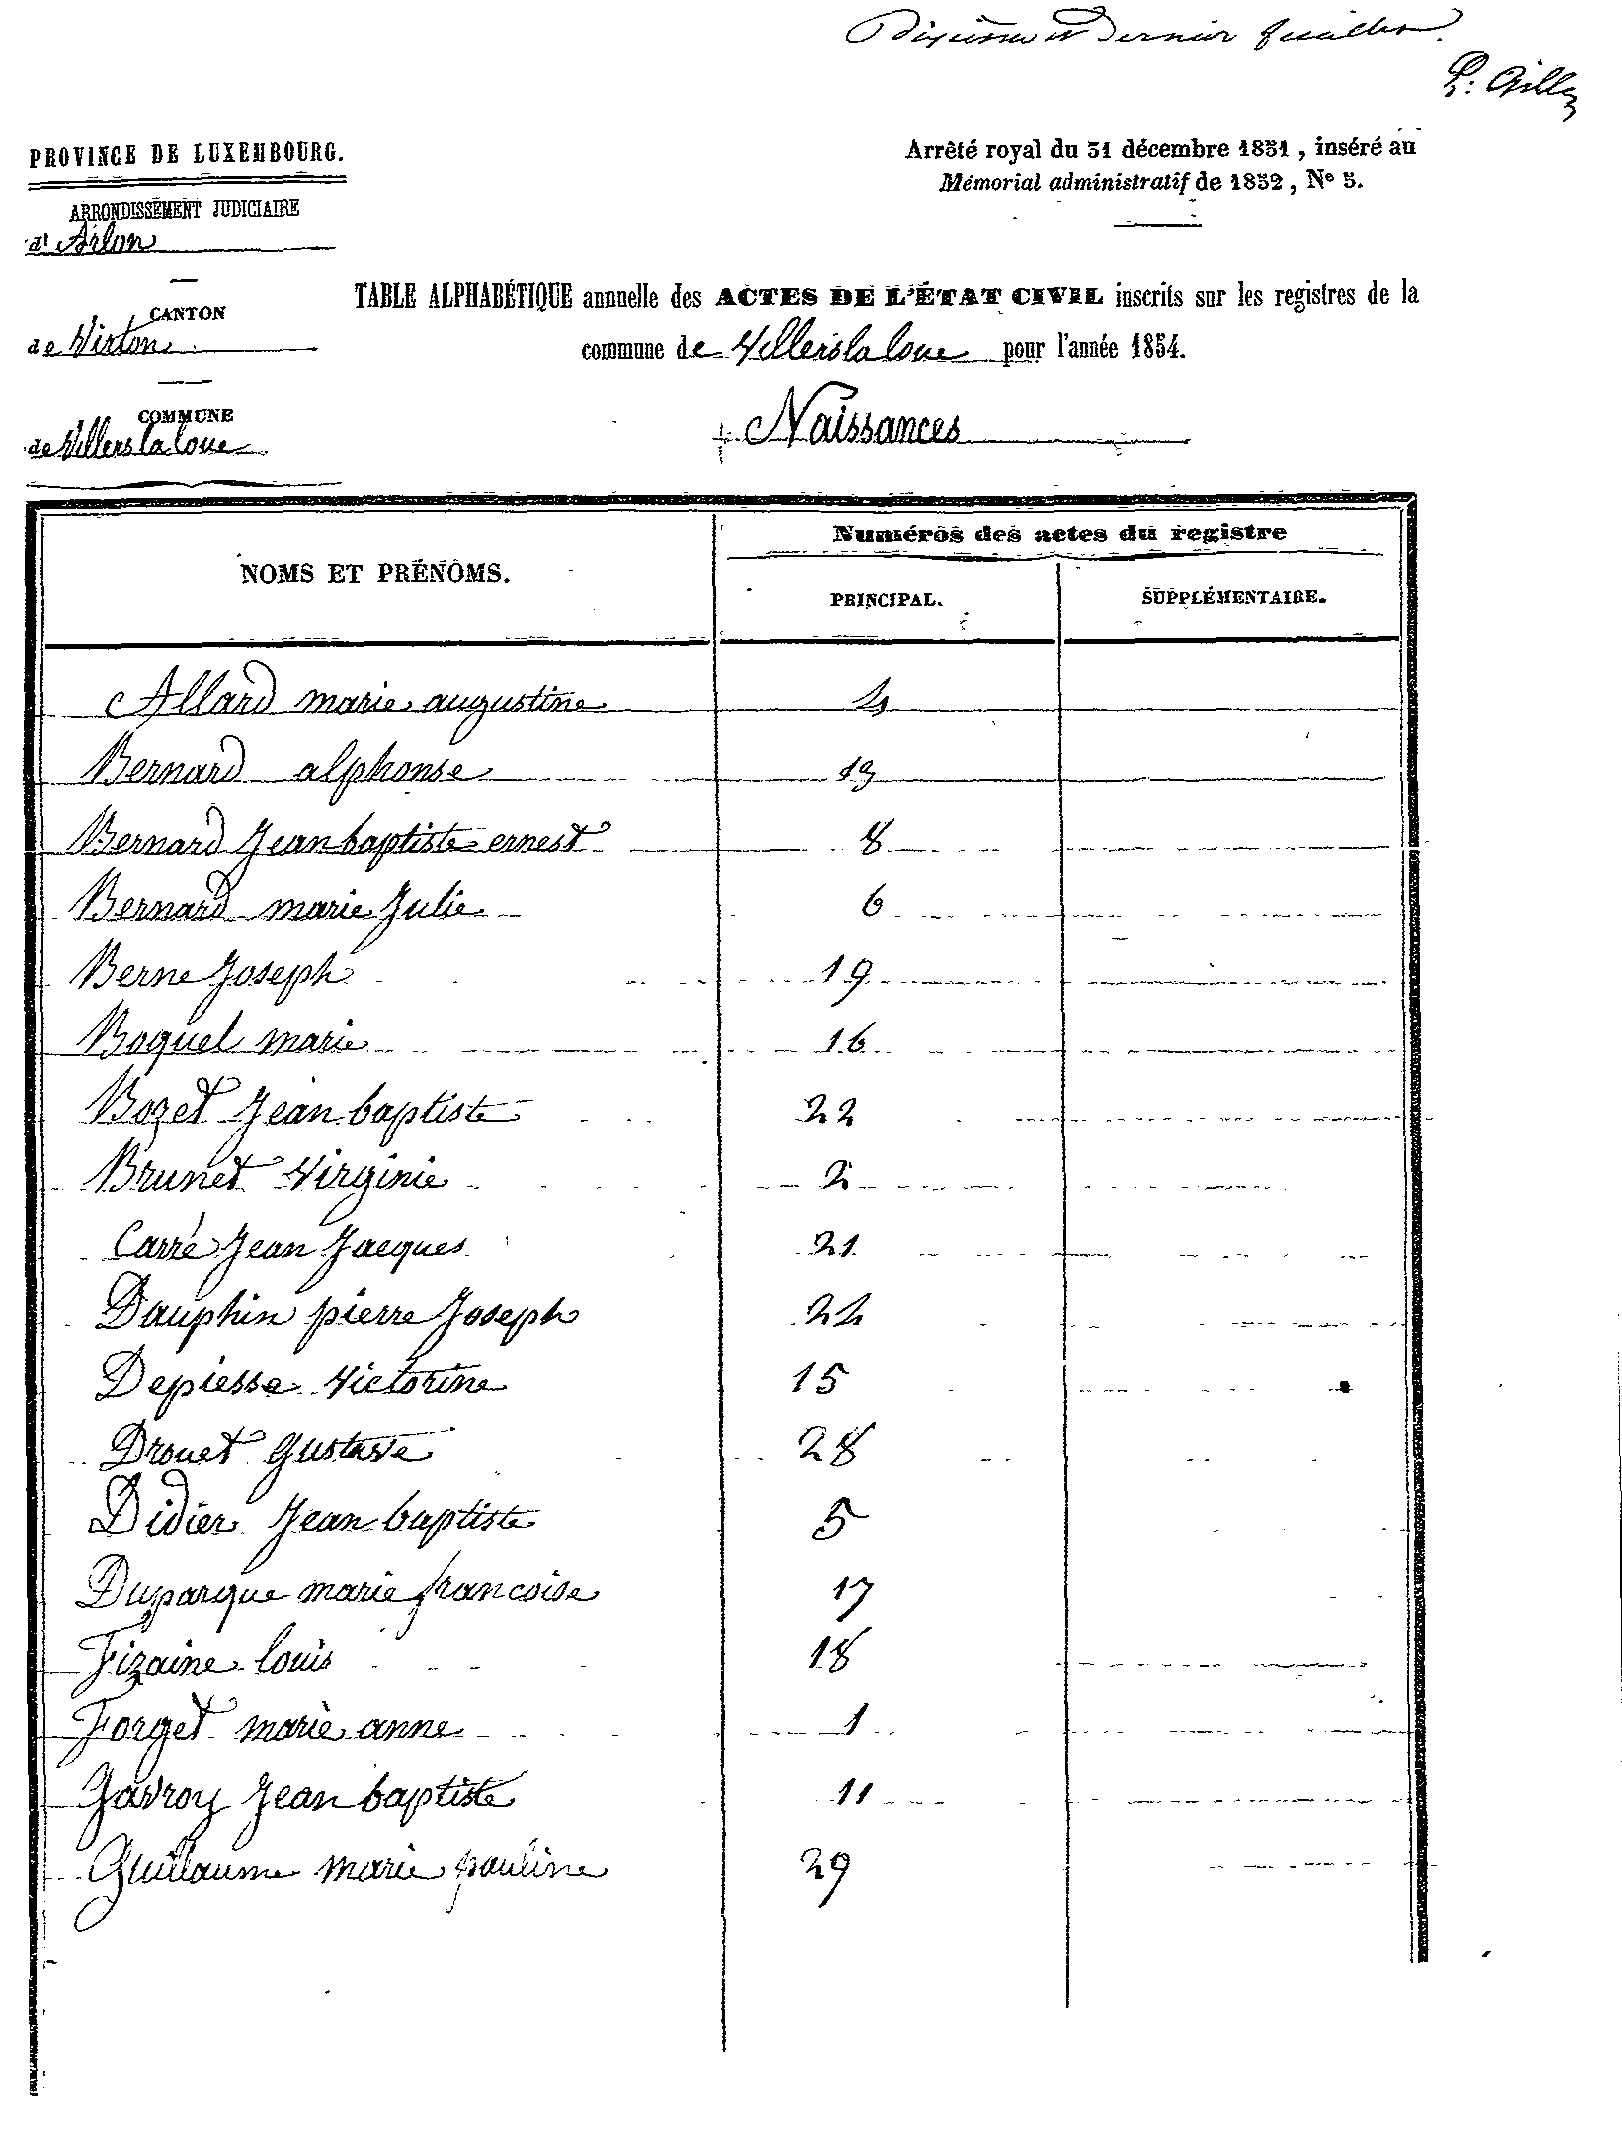 Dixième et Dernier feuillet.
P. Gillez
PROVINCE DE LUXEMBOURG.
ARRONDISSEMENT JUDICIAIRE
d'Arlon
CANTON
de Virton
COMMUNE
de Villers la loue
Arrêté royal du 31 décembre 1831, inséré au
Mémorial administratif de 1832, No 5.
TABLE ALPHABÉTIQUE annuelle des ACTES DE L'ÉTAT CIVIL inscrits sur les registres de la
commune de Villers la loue pour l'année 1854.
Naissances
NOMS ET PRÉNOMS.
Numéros des actes du registre
PRINCIPAL.
SUPPLÉMENTAIRE.
Allard marie augustine 4
Bernard alphonse 13
Bernard Jean baptiste ernest 8
Bernard marie Julie 6
Berne Joseph 19
Boquel marie 16
Bozet Jean baptiste 22
Brunet Virginie 2
Carré Jean Jacques 21
Dauphin pierre Joseph 24
Depiesse Victorine 15
Drouet Gustave 28
Didier Jean baptiste 5
Duparque marie francoise 17
Fizaine louis 18
Forget marie anne 1
Gavroy Jean baptiste 11
Guillaume marie pauline 29